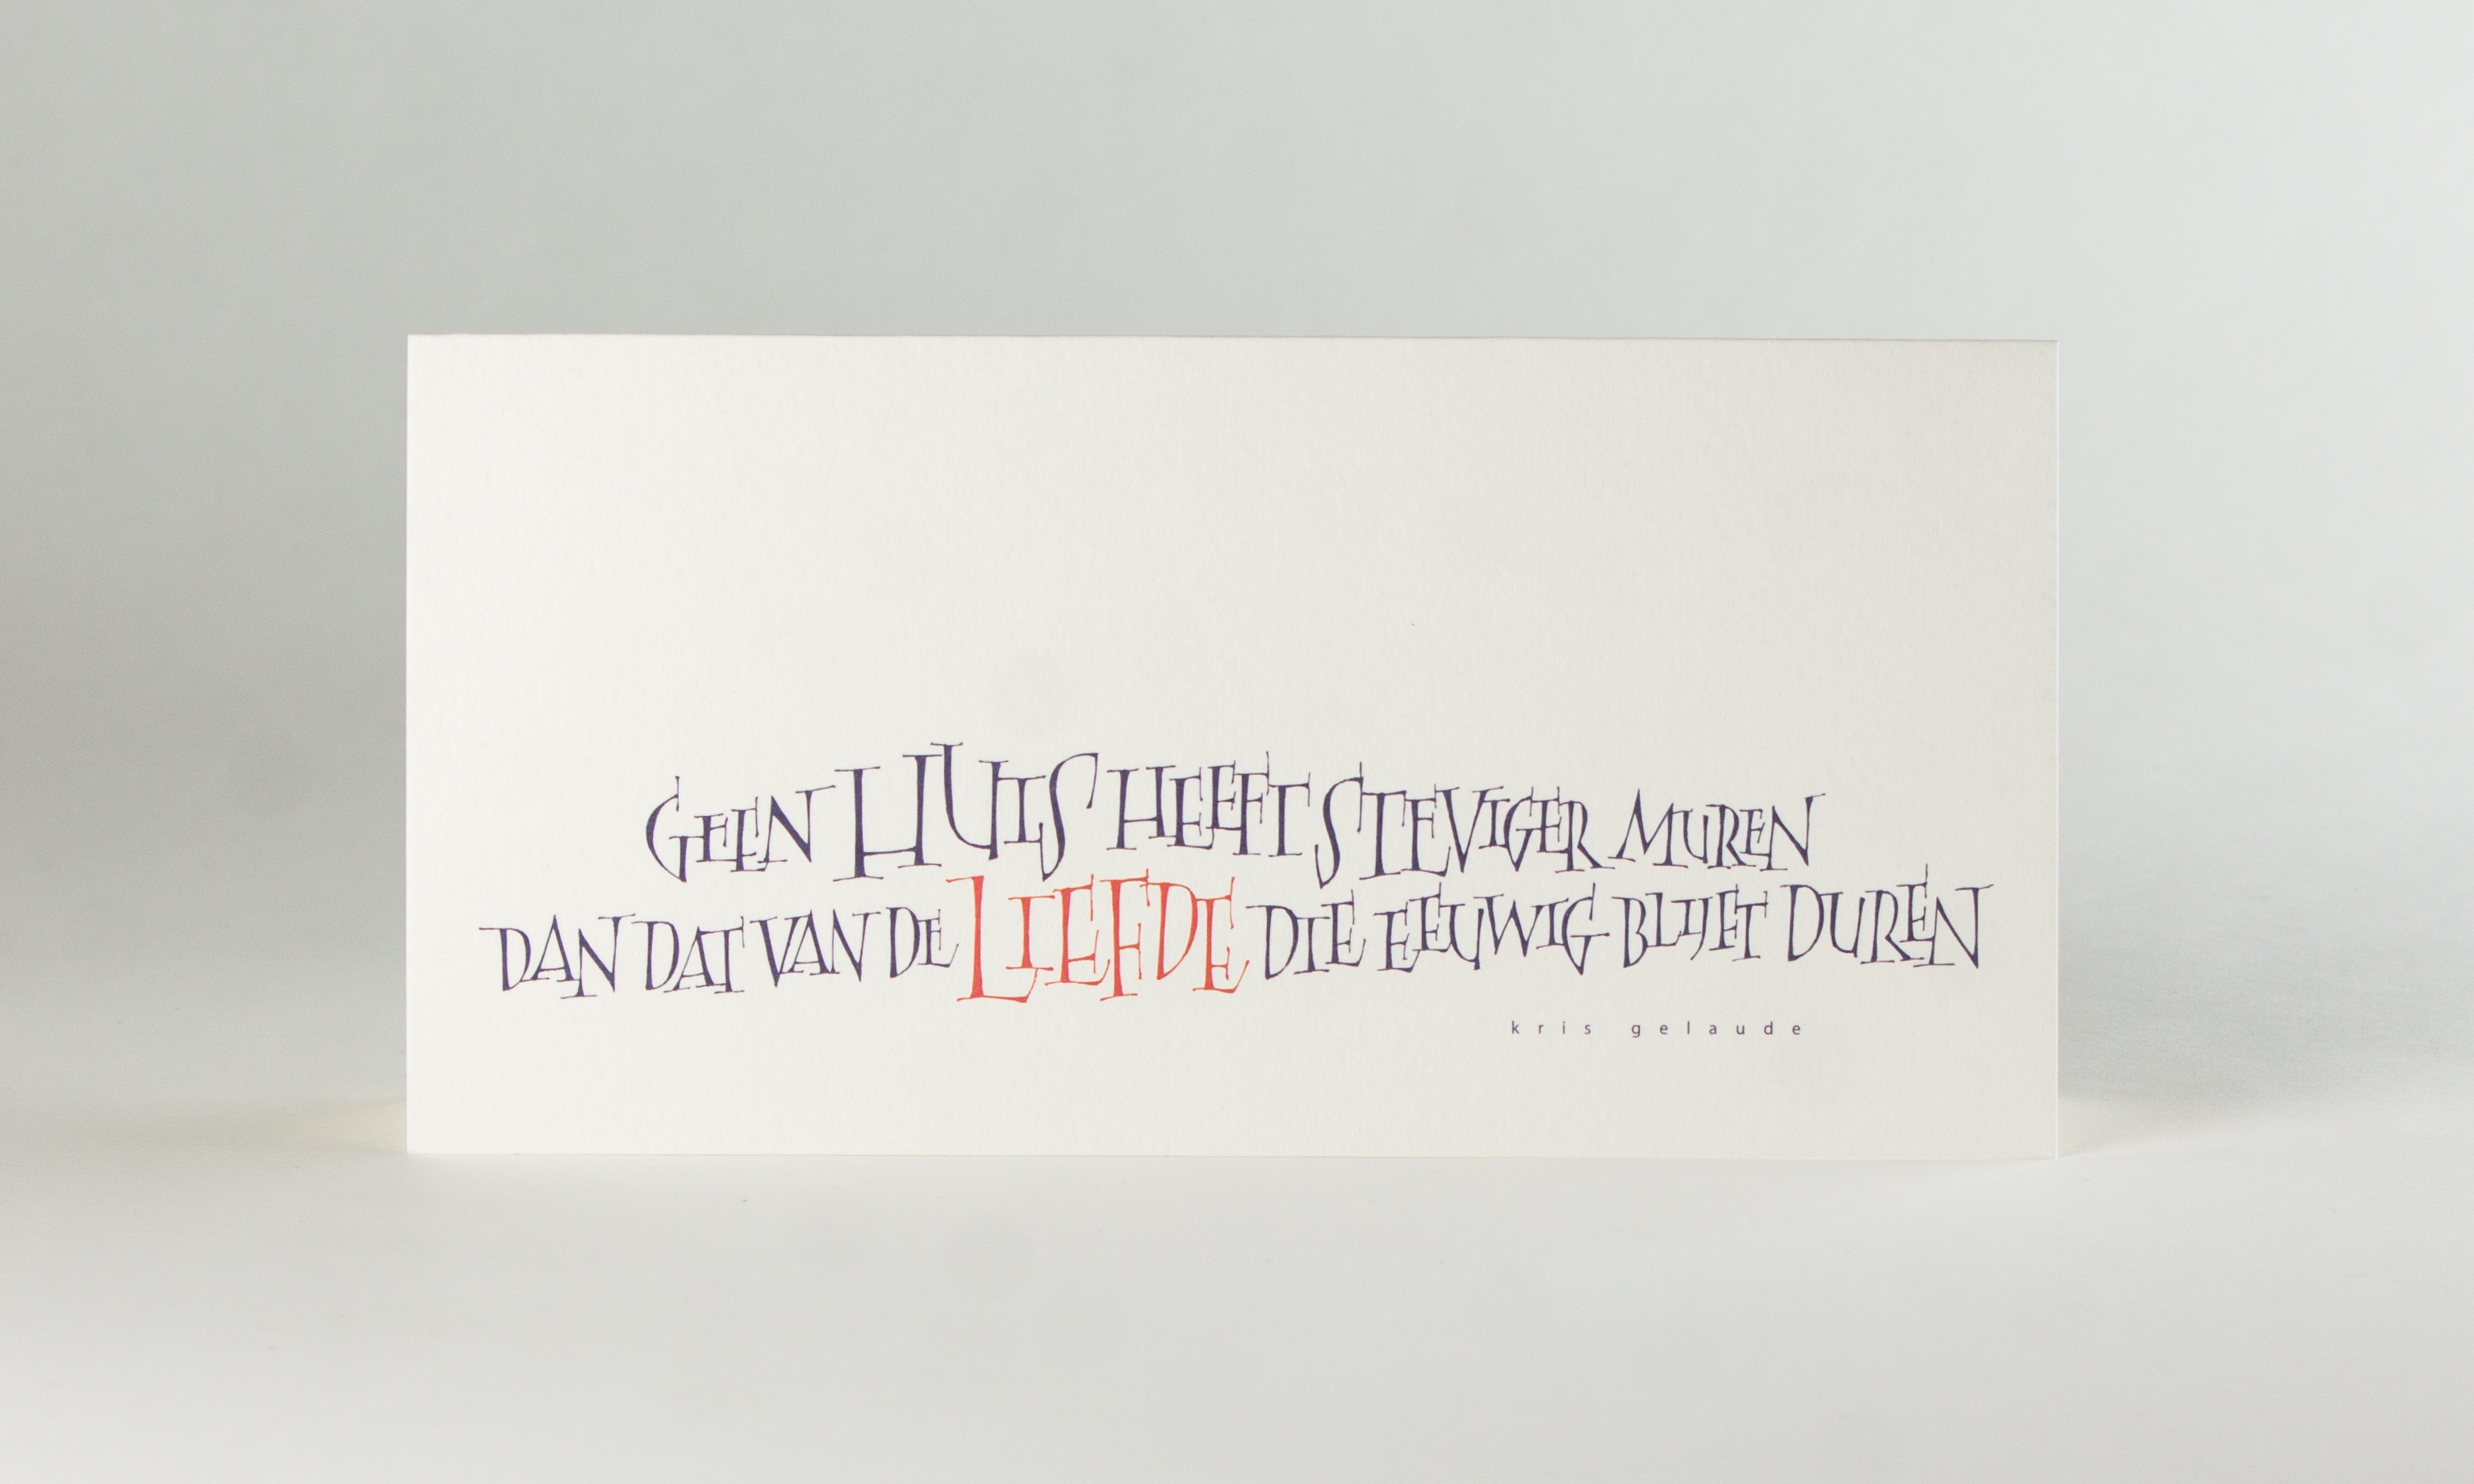 GEEN HUIS HEEFT STEVIGER MUREN
DAN DAT VAN DE LIEFDE DIE EEUWIG BLIJFT DUREN
kris gelaude